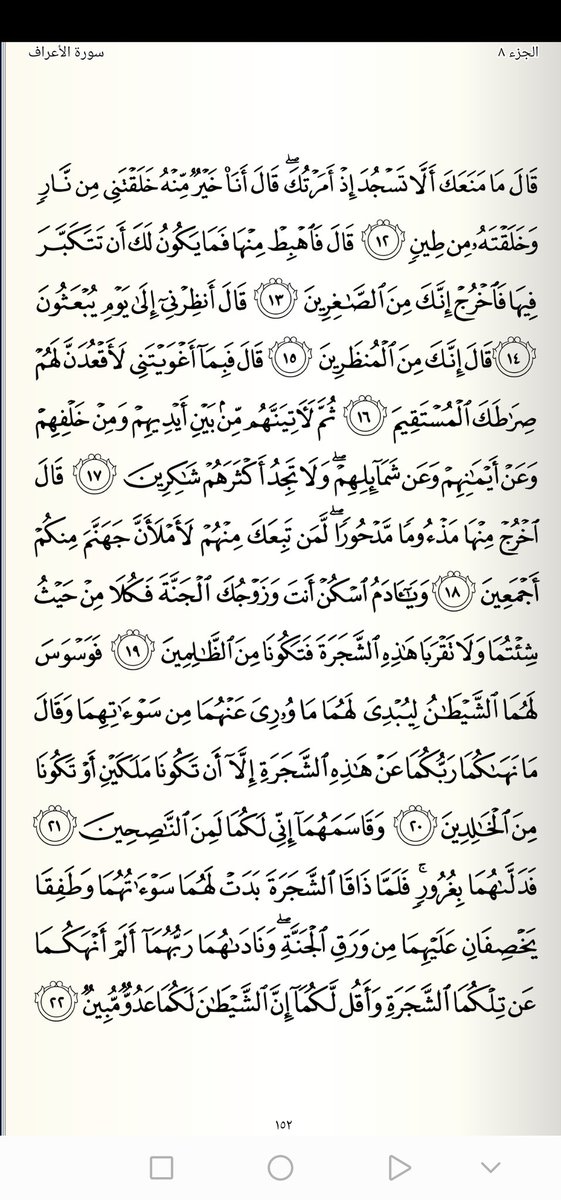 الجزء ٨
سورة الأعراف
قَالَ مَا مَنَعَكَ أَلَّا تَسْجُدَ إِذْ أَمَرْتُكَۖ قَالَ أَنَا۠ خَيْرٌ مِّنْهُ خَلَقْتَنِى مِن نَّارٍ
وَخَلَقْتَهُۥ مِن طِينٍ ١٢ قَالَ فَٱهْبِطْ مِنْهَا فَمَا يَكُونُ لَكَ أَن تَتَكَبَّرَ
فِيهَا فَٱخْرُجْ إِنَّكَ مِنَ ٱلصَّـٰغِرِينَ ١٣ قَالَ أَنظِرْنِىٓ إِلَىٰ يَوْمِ يُبْعَثُونَ
١٤ قَالَ إِنَّكَ مِنَ ٱلْمُنظَرِينَ ١٥ قَالَ فَبِمَآ أَغْوَيْتَنِى لَأَقْعُدَنَّ لَهُمْ
صِرَٰطَكَ ٱلْمُسْتَقِيمَ ١٦ ثُمَّ لَـَٔاتِيَنَّهُم مِّنۢ بَيْنِ أَيْدِيهِمْ وَمِنْ خَلْفِهِمْ
وَعَنْ أَيْمَـٰنِهِمْ وَعَن شَمَآئِلِهِمْۖ وَلَا تَجِدُ أَكْثَرَهُمْ شَـٰكِرِينَ ١٧ قَالَ
ٱخْرُجْ مِنْهَا مَذْءُومًا مَّدْحُورًاۖ لَّمَن تَبِعَكَ مِنْهُمْ لَأَمْلَأَنَّ جَهَنَّمَ مِنكُمْ
أَجْمَعِينَ ١٨ وَيَـٰٓـَٔادَمُ ٱسْكُنْ أَنتَ وَزَوْجُكَ ٱلْجَنَّةَ فَكُلَا مِنْ حَيْثُ
شِئْتُمَا وَلَا تَقْرَبَا هَـٰذِهِ ٱلشَّجَرَةَ فَتَكُونَا مِنَ ٱلظَّـٰلِمِينَ ١٩ فَوَسْوَسَ
لَهُمَا ٱلشَّيْطَـٰنُ لِيُبْدِىَ لَهُمَا مَا وُۥرِىَ عَنْهُمَا مِن سَوْءَٰتِهِمَا وَقَالَ
مَا نَهَىٰكُمَا رَبُّكُمَا عَنْ هَـٰذِهِ ٱلشَّجَرَةِ إِلَّآ أَن تَكُونَا مَلَكَيْنِ أَوْ تَكُونَا
مِنَ ٱلْخَـٰلِدِينَ ٢٠ وَقَاسَمَهُمَآ إِنِّى لَكُمَا لَمِنَ ٱلنَّـٰصِحِينَ ٢١
فَدَلَّىٰهُمَا بِغُرُورٍۚ فَلَمَّا ذَاقَا ٱلشَّجَرَةَ بَدَتْ لَهُمَا سَوْءَٰتُهُمَا وَطَفِقَا
يَخْصِفَانِ عَلَيْهِمَا مِن وَرَقِ ٱلْجَنَّةِۖ وَنَادَىٰهُمَا رَبُّهُمَآ أَلَمْ أَنْهَكُمَا
عَن تِلْكُمَا ٱلشَّجَرَةِ وَأَقُل لَّكُمَآ إِنَّ ٱلشَّيْطَـٰنَ لَكُمَا عَدُوٌّ مُّبِينٌ ٢٢
١٥٢